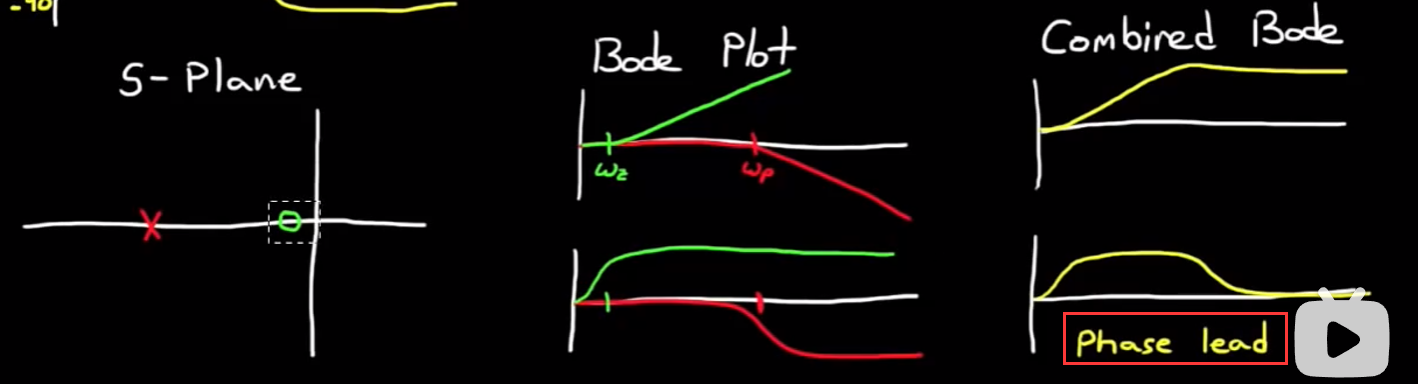 -90
S-Plane
Bode Plot
ωz
ωp
Combined Bode
Phase lead